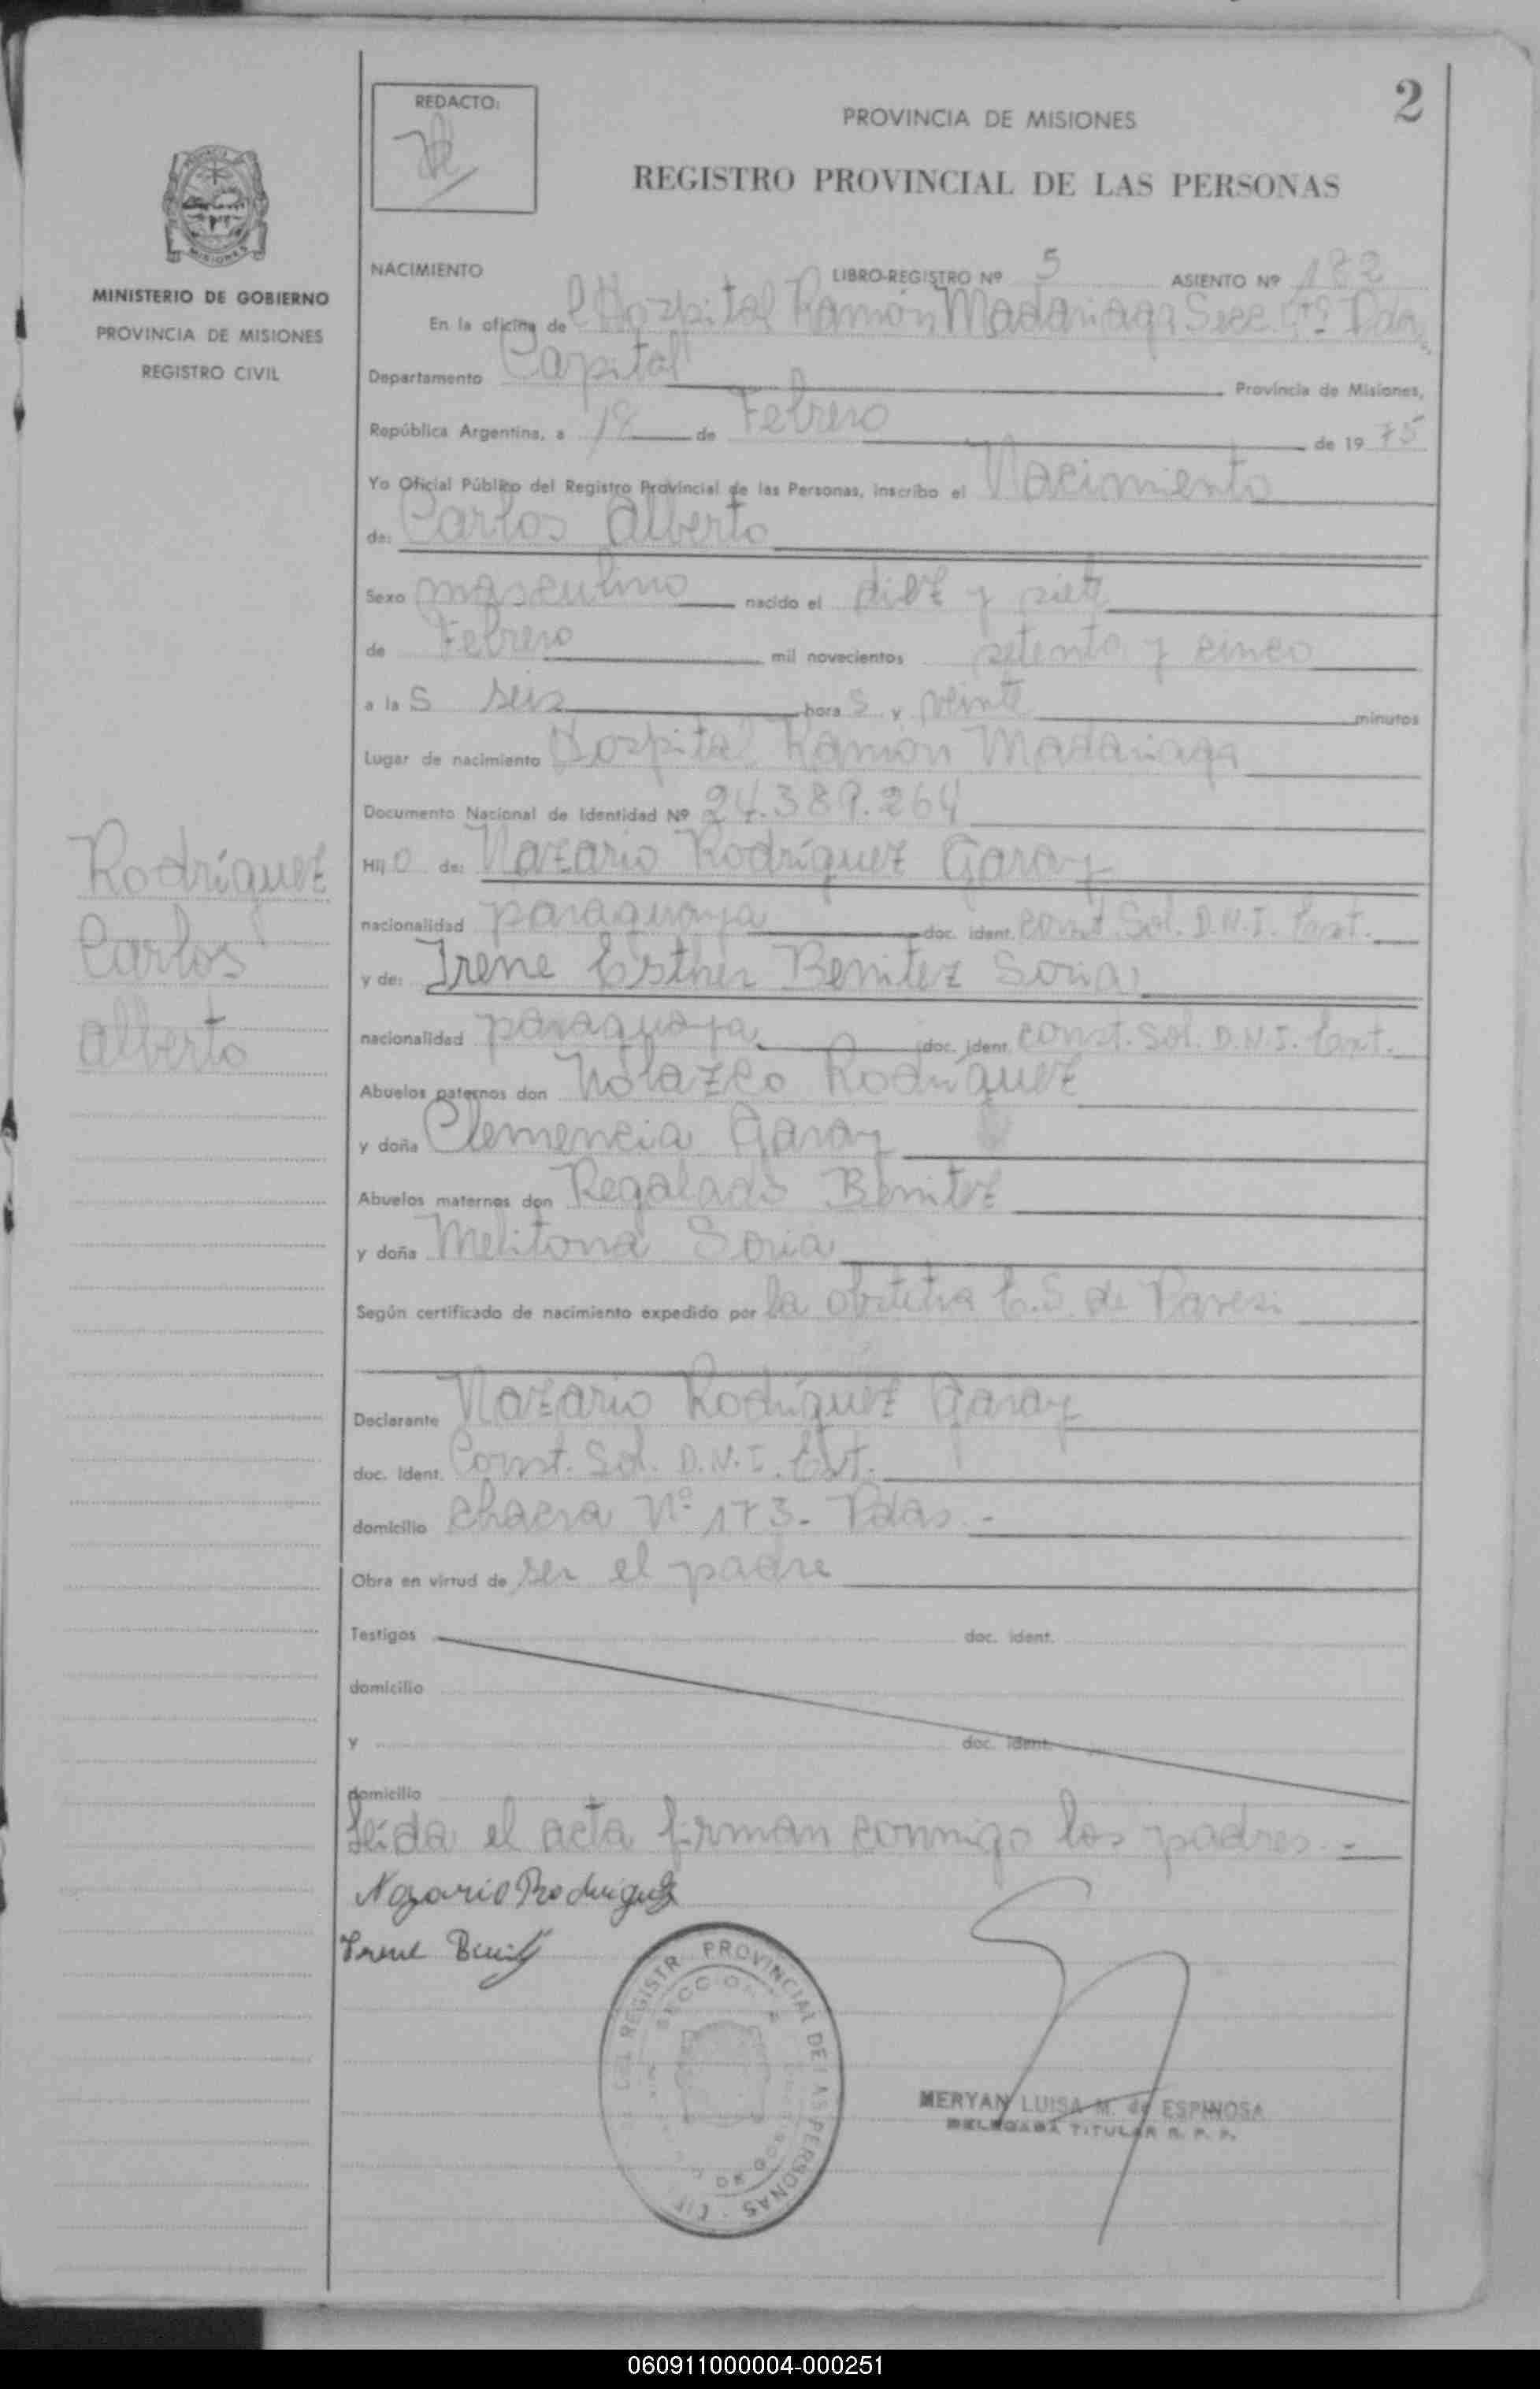 2
REDACTO:
PROVINCIA DE MISIONES
REGISTRO PROVINCIAL DE LAS PERSONAS
MISIONES
MINISTERIO DE GOBIERNO
PROVINCIA DE MISIONES
REGISTRO CIVIL
NACIMIENTO LIBRO-REGISTRO Nº 5 ASIENTO Nº 182
En la oficina de l Hospital Ramón Madariaga Secc.
Departamento Capital Provincia de Misiones,
República Argentina, a 18 de Febrero de 19 75
Yo Oficial Público del Registro Provincial de las Personas, inscribo el Nacimiento
de: Carlos Alberto
Sexo masculino nacido el diez y siete
de Febrero mil novecientos setenta y cinco
a la S seis hora S y veinte minutos
Lugar de nacimiento Hospital Ramón Madariaga
Documento Nacional de Identidad Nº 24.389.264
Rodríguez
Carlos
Alberto
Hij o de: Nazario Rodríguez Garay
nacionalidad paraguaya doc. ident. const. Sol. D.N.I. Ext.
y de: Irene Esther Benitez Soria
nacionalidad paraguaya doc. ident. const. Sol. D.N.I. Ext.
Abuelos paternos don Nolazco Rodríguez
y doña Clemencia Garay
Abuelos maternos don Regalado Benitez
y doña Melitona Soria
Según certificado de nacimiento expedido por la obstetra E.S. de Paresi
Declarante Nazario Rodríguez Garay
doc. ident. Const. Sol. D.N.I. Ext.
domicilio chacra Nº 173 - Pdas. -
Obra en virtud de ser el padre
Testigos doc. ident.
domicilio
y doc. ident.
domicilio
Leída el acta firman conmigo los padres. -
Nazario Rodriguez
Irene Benitez
REGISTR PROVINCIAL DE LAS PERSONAS
SECCION
MERYAN LUISA M. de ESPINOSA
DELEGADA TITULAR R. P. P.
060911000004-000251